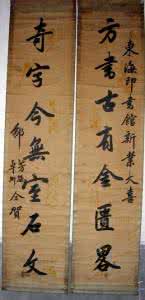 東海印書館新業大喜
方書古有金匱畧
奇字今無室石文
鄒芳
仝賀